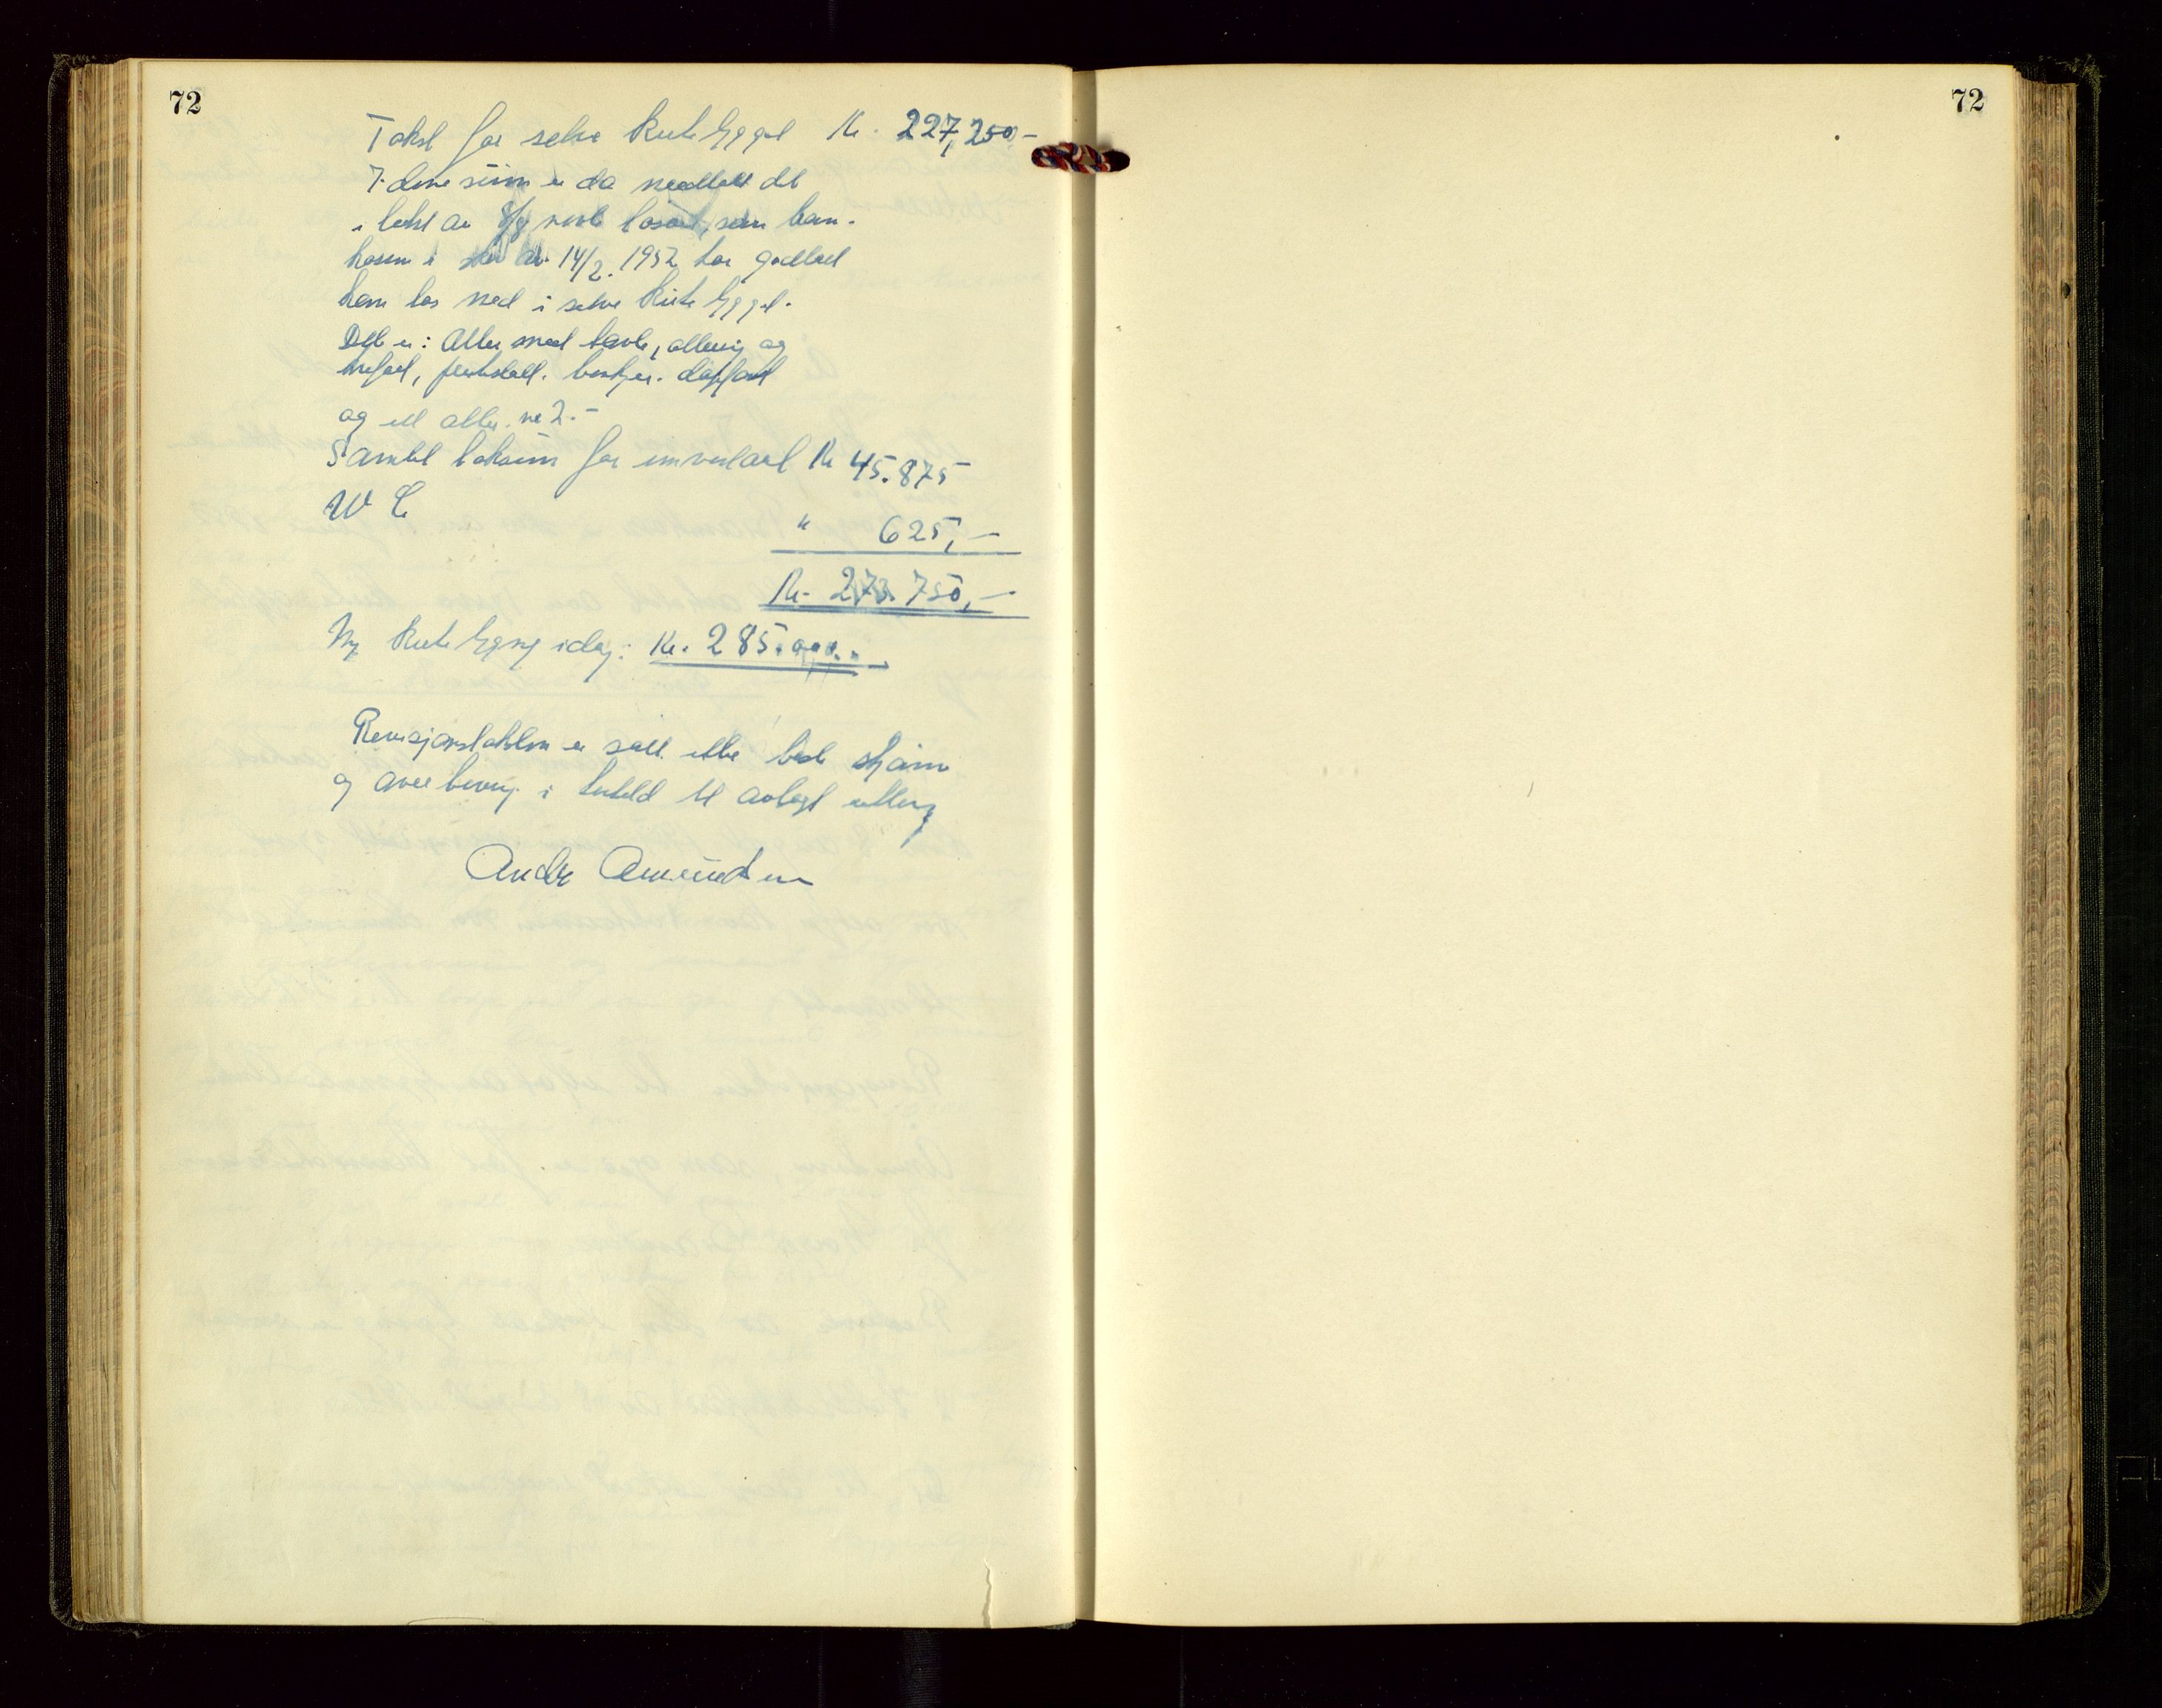 72
72
Takst for selve kirkebygget Kr. 227,250,-
I denne sum er da medtatt det
i takst av 8/9 nevnte løsøre, som bran-
kassen i skriv av 14/2. 1952 har godtatt
kan tas med i selve kirkebygget.
Det er: Alter med tavle, altering og
knefael, prekestoll. benker. døpefont
og et alter. nr 2.-
Samlet taksum for inventaret Kr 45.875
W C " 625,-
Kr. 273.750,-
Ny kirkebygning idag: Kr. 285.000.-
Revisjonstaksten er satt etter beste skjønn
og overbevisning i henhold til avlagt
Amundsen